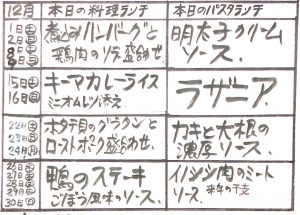 12月 本日の料理ランチ 本日のパスタランチ
1日㊏
2日㊐
8日㊏
9日㊐
煮込みハンバーグと
鶏肉のソテー盛合わせ
明太子クリーム
ソース.
15日㊏
16日㊐
キーマカレーライス
ミニオムレツ添え
ラザニア.
22日㊏
23日㊐
24日㊊
ホタテ貝のグラタンと
ローストポーク盛合わせ.
カキと大根の
濃厚ソース.
28日
29日㊏
30日㊐
鴨のステーキ
ごぼう風味のソース.
イノシシ肉のミート
ソース. 来年の干支